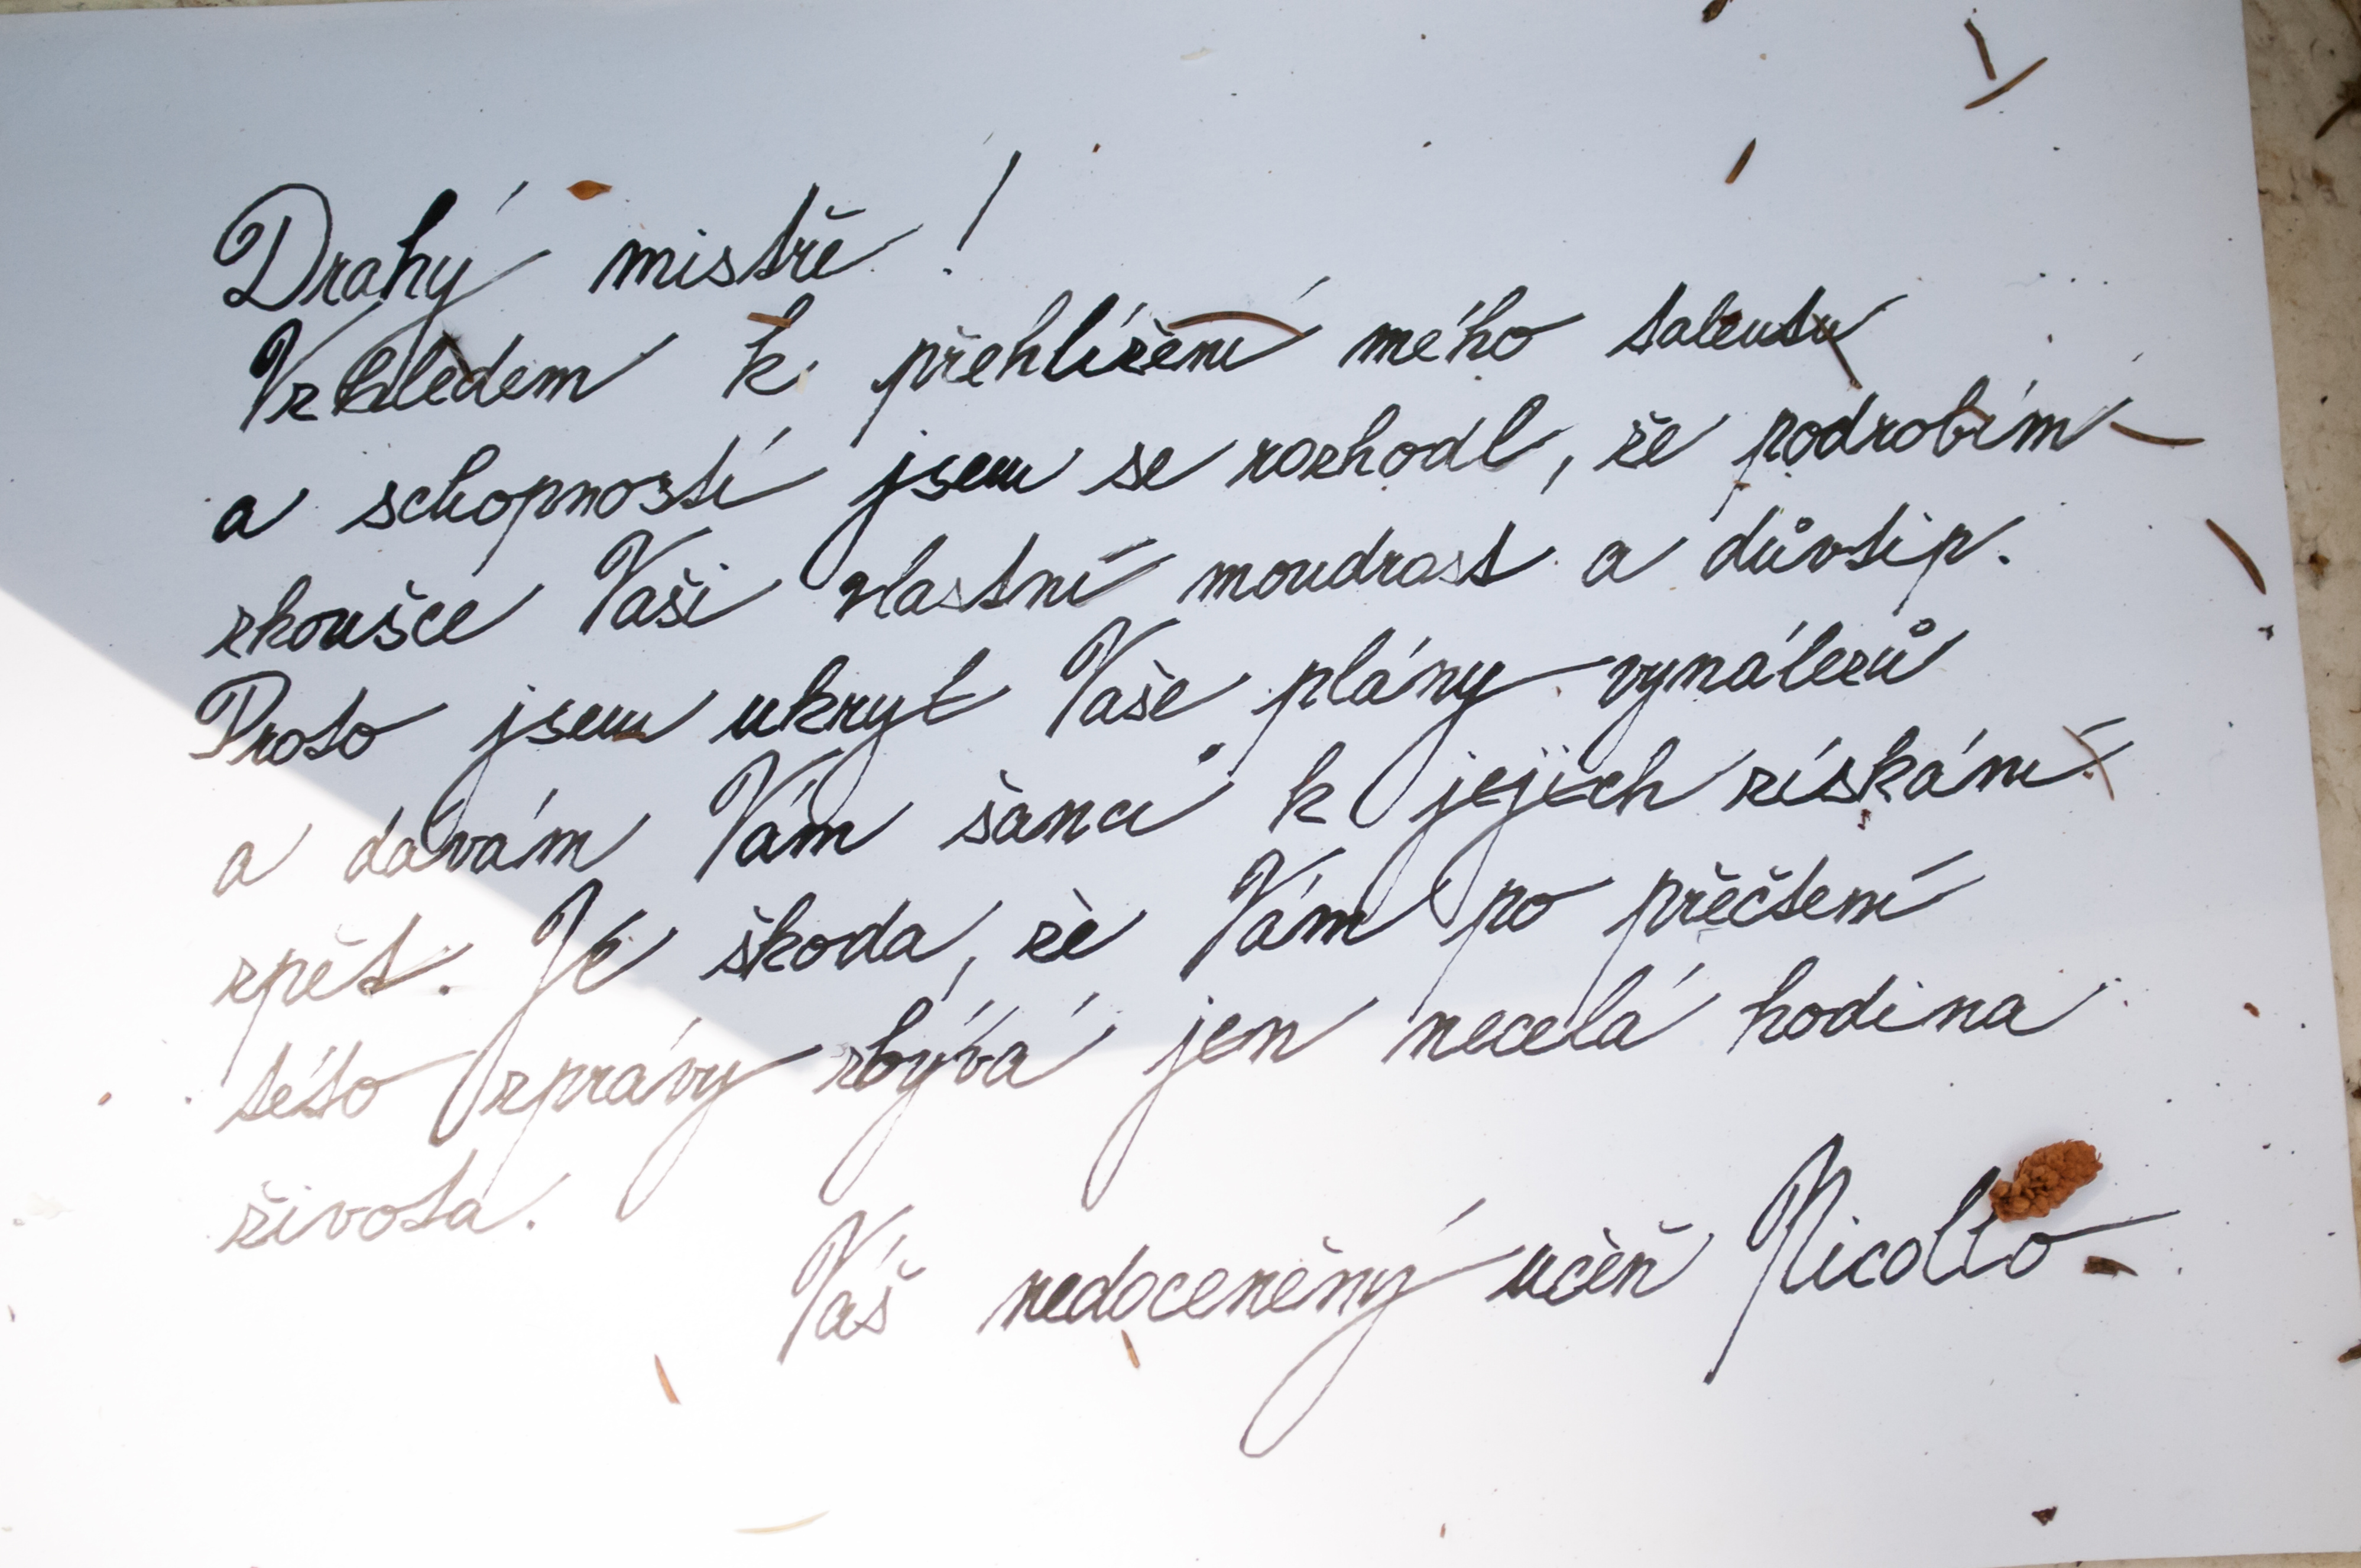 Drahý mistře !
Vzhledem k přehlížení mého talentu
a schopností jsem se rozhodl, že podrobím
zkoušce Vaši vlastní moudrost a důvtip.
Proto jsem ukryl Vaše plány vynálezů
a dávám Vám šanci k jejich získání
zpět. Je škoda, že Vám po přečtení
této zprávy zbývá jen necelá hodina
života.
Váš nedoceněný učeň Nicollo